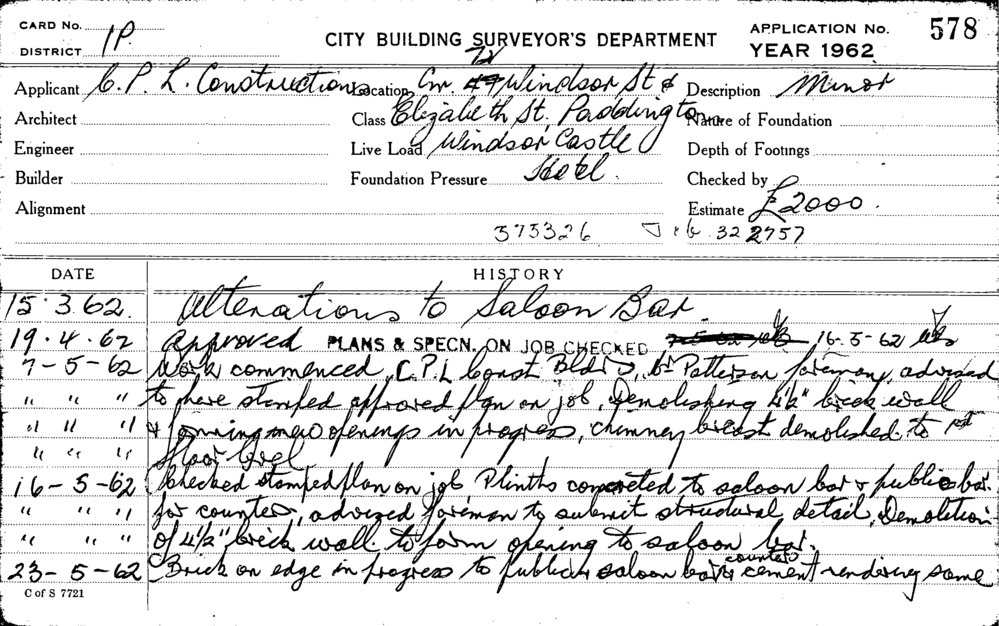 CARD No. 1P.
DISTRICT
CITY BUILDING SURVEYOR'S DEPARTMENT
APPLICATION No. 578
YEAR 1962
Applicant C. P. L. Constructions Location Cnr. 49 72 Windsor St & Description Minor
Architect Class Elizabeth St. Paddington Nature of Foundation
Engineer Live Load Windsor Castle Depth of Footings
Builder Foundation Pressure Hotel. Checked by
Alignment Estimate £2000.
373326 322757
DATE HISTORY
15.3.62. Alterations to Saloon Bar.
19.4.62 Approved PLANS & SPECN. ON JOB CHECKED 16-5-62
7-5-62 Work commenced, C.P.L Const Bldrs, Mr Patterson foreman, advised
" " " to have stamped approved plan on job, Demolishing 4½" brick wall
" " " & forming new openings in progress, chimney breast demolished to 1st
" " " floor level
16-5-62 Checked stamped plan on job Plinths concreted to saloon bar & public bar.
" " " for counters, advised foreman to submit structural detail, Demolition
" " " of 4½" brick wall to form opening to saloon bar.
23-5-62 Brick on edge in progress to public & saloon bar counters & cement rendering same
C of S 7721